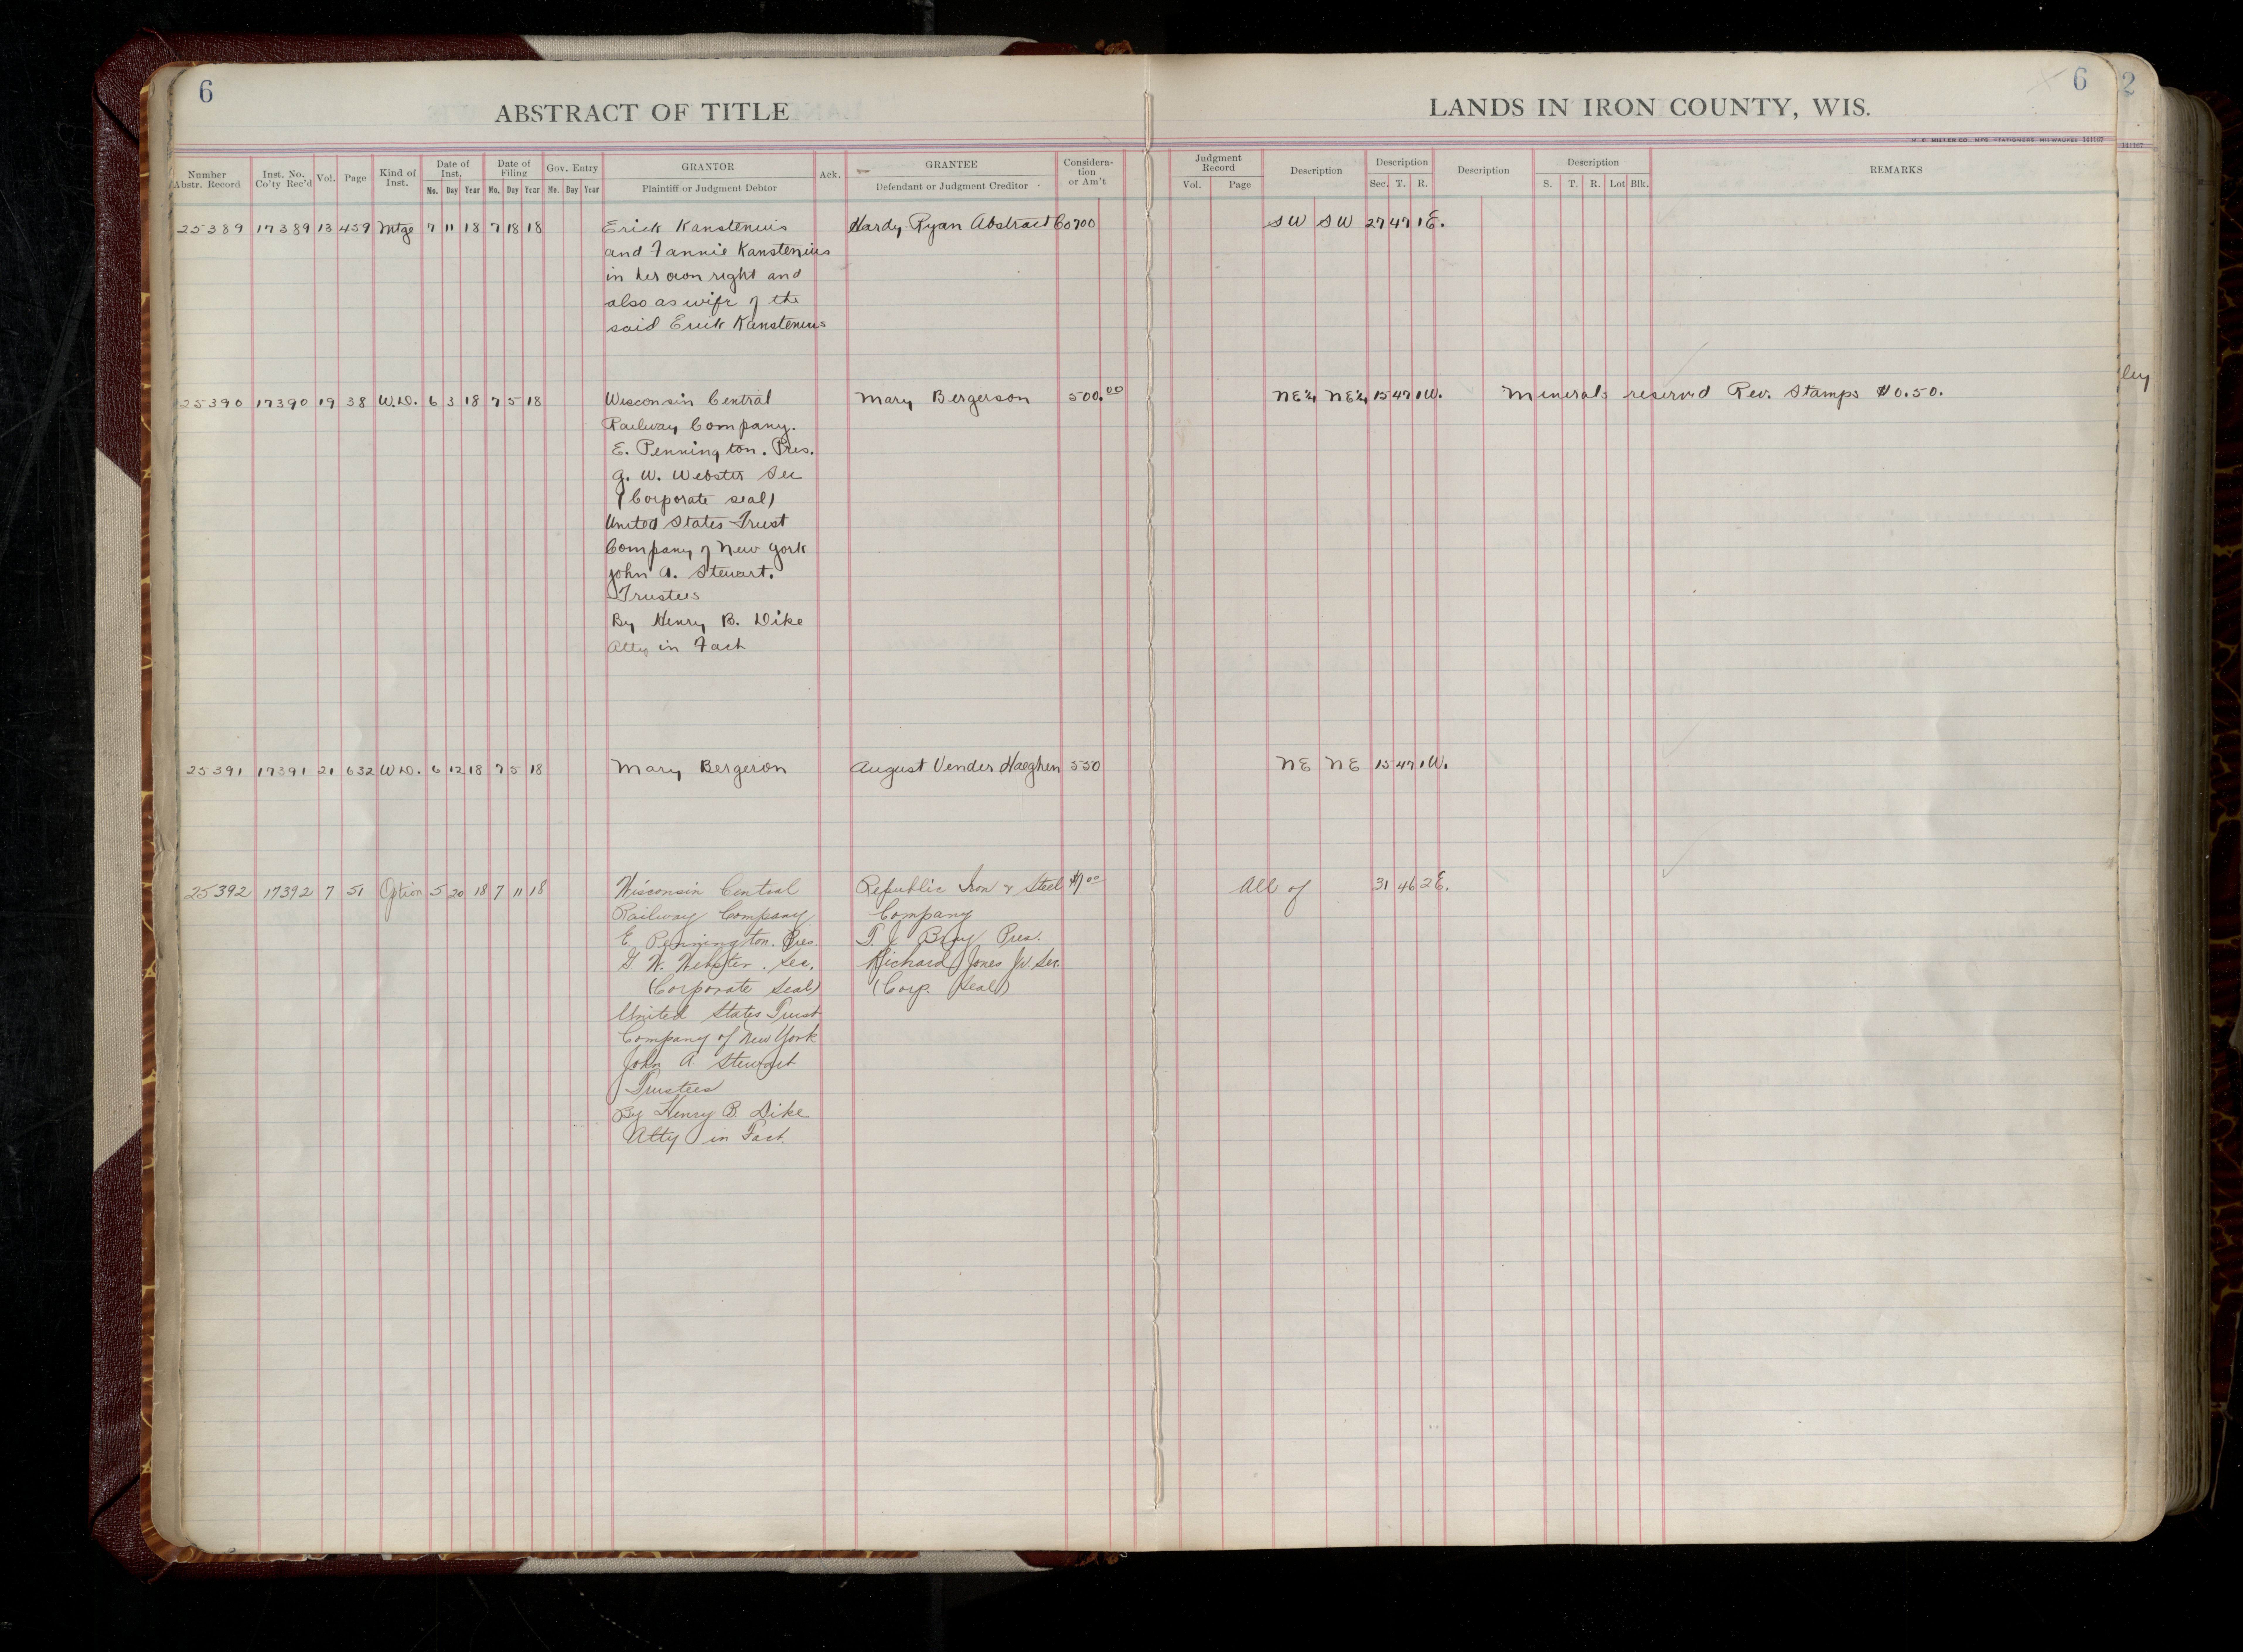 6
6
2
ABSTRACT OF TITLE
LANDS IN IRON COUNTY, WIS.
Number Abstr. Record
Inst. No. Co'ty Rec'd
Vol.
Page
Kind of Inst.
Date of Inst.
Mo. Day Year
Date of Filing
Mo. Day Year
Gov. Entry
Mo. Day Year
GRANTOR
Plaintiff or Judgment Debtor
Ack.
GRANTEE
Defendant or Judgment Creditor
Considera-tion or Am't
Judgment Record
Vol. Page
Description
Description
Sec. T. R.
Description
Description
S. T. R. Lot Blk.
REMARKS
25389 17389 13 459 Mtge 7 11 18 7 18 18 Erick Kanstenius Hardy-Ryan Abstract Co 700 SW SW 27 47 1E.
and Fannie Kanstenius
in her own right and
also as wife of the
said Erick Kanstenius
ley
25390 17390 19 38 W.D. 6 3 18 7 5 18 Wisconsin Central Mary Bergerson 500.00 NE¼ NE¼ 15 47 1W. Minerals reserved Rev. Stamps $0.50.
Railway Company.
E. Pennington. Pres.
G. W. Webster Sec
(Corporate seal)
United States Trust
Company of New York
John A. Stewart.
Trustees
By Henry B. Dike
Atty in Fact
25391 17391 21 632 W.D. 6 12 18 7 5 18 Mary Bergeron August Vender Haeghen 550 NE NE 15 47 1W.
25392 17392 7 51 Option 5 20 18 7 11 18 Wisconsin Central Republic Iron & Steel $1.00 All of 31 46 2E.
Railway Company Company
E. Pennington. Pres. T. J. Bray Pres.
G W. Webster. Sec. Richard Jones Jr. Sec.
(Corporate Seal) (Corp. Seal)
United States Trust
Company of New York
John A. Stewart
Trustees
By Henry B. Dike
Atty in Fact.